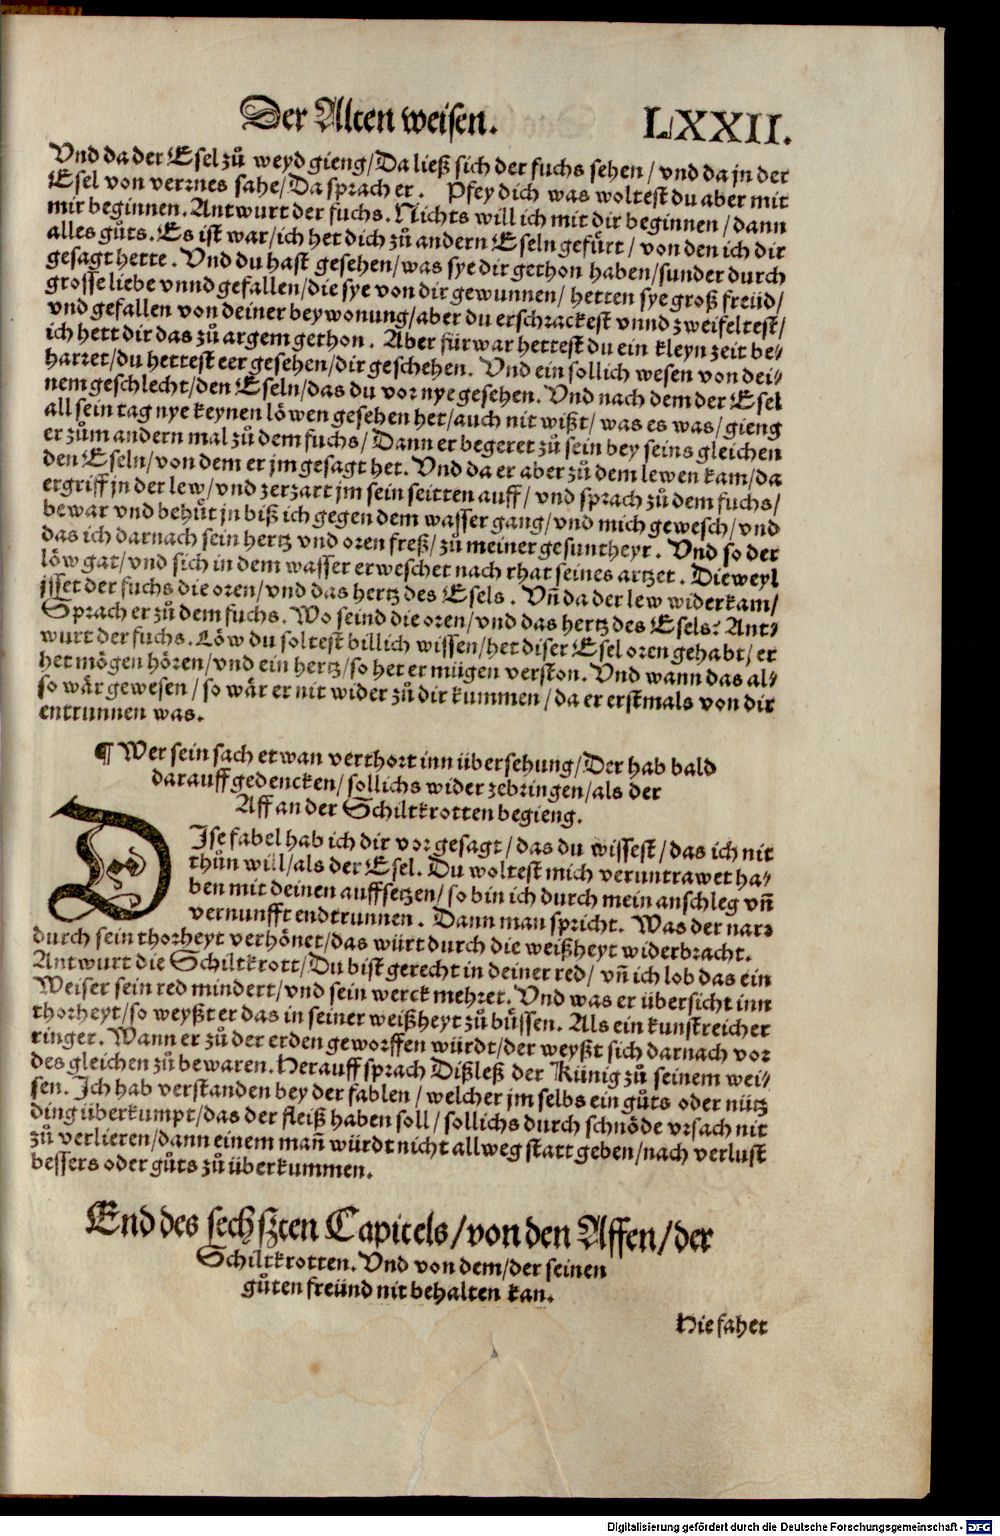 Der Alten weisen. LXXII.
Vnd da der Esel zů weyd gieng/Da ließ sich der fuchs sehen/vnd da jn der
Esel von verrnes sahe/Da sprach er. Pfey dich was woltest du aber mit
mir beginnen. Antwurt der fuchs. Nichts will ich mit dir beginnen/dann
alles gůts. Es ist war/ich het dich zů andern Eseln gefürt/von den ich dir
gesagt hette. Vnd du hast gesehen/was sye dir gethon haben/sunder durch
grosse liebe vnnd gefallen/die sye von dir gewunnen/hetten sye groß freüd/
vnd gefallen von deiner beywonung/aber du erschrackest vnnd zweifeltest/
ich hett dir das zů argem gethon. Aber fürwar hettest du ein kleyn zeit be⸗
harret/du hettest eer gesehen/dir geschehen. Vnd ein sollich wesen von dei⸗
nem geschlecht/den Eseln/das du vor nye gesehen. Vnd nach dem der Esel
all sein tag nye keynen löwen gesehen het/auch nit wißt/was es was/gieng
er zům andern mal zů dem fuchs/Dann er begeret zů sein bey seins gleichen
den Eseln/von dem er jm gesagt het. Vnd da er aber zů dem lewen kam/da
ergriff jn der lew/vnd zerzart jm sein seitten auff/vnd sprach zů dem fuchs/
bewar vnd behüt jn biß ich gegen dem wasser gang/vnd mich gewesch/vnd
das ich darnach sein hertz vnd oren freß/zů meiner gesuntheyt. Vnd so der
löw gat/vnd sich in dem wasser erweschet nach rhat seines artzet. Dieweyl
jsset der fuchs die oren/vnd das hertz des Esels. Vñ da der lew widerkam/
Sprach er zů dem fuchs. Wo seind die oren/vnd das hertz des Esels? Ant⸗
wurt der fuchs. Löw du soltest billich wissen/het diser Esel oren gehabt/er
het mögen hören/vnd ein hertz/so het er mügen verston. Vnd wann das al⸗
so wär gewesen/so wär er nit wider zů dir kummen/da er erstmals von dir
entrunnen was.
¶ Wer sein sach etwan verthort inn übersehung/Der hab bald
darauff gedencken/sollichs wider zebringen/als der
Aff an der Schiltkrotten begieng.
DIse fabel hab ich dir vor gesagt/das du wissest/das ich nit
thůn will/als der Esel. Du woltest mich veruntrawet ha⸗
ben mit deinen auffsetzen/so bin ich durch mein anschleg vñ
vernunfft endtrunnen. Dann man spricht. Was der narr
durch sein thorheyt verhönet/das würt durch die weißheyt widerbracht.
Antwurt die Schiltkrott/Du bist gerecht in deiner red/vñ ich lob das ein
Weiser sein red mindert/vnd sein werck mehret. Vnd was er übersicht inn
thorheyt/so weyßt er das in seiner weißheyt zů büssen. Als ein kunstreicher
ringer. Wann er zů der erden geworffen würdt/der weyßt sich darnach vor
des gleichen zů bewaren. Herauff sprach Dißleß der Künig zů seinem wei⸗
sen. Ich hab verstanden bey der fablen/welcher jm selbs ein gůts oder nütz
ding überkumpt/das der fleiß haben soll/sollichs durch schnöde vrsach nit
zů verlieren/dann einem mañ würdt nicht allweg statt geben/nach verlust
bessers oder gůts zů überkummen.
End des sechßten Capitels/von den Affen/der
Schiltkrotten. Vnd von dem/der seinen
gůten freünd nit behalten kan.
Hie fahet
Digitalisierung gefördert durch die Deutsche Forschungsgemeinschaft - DFG